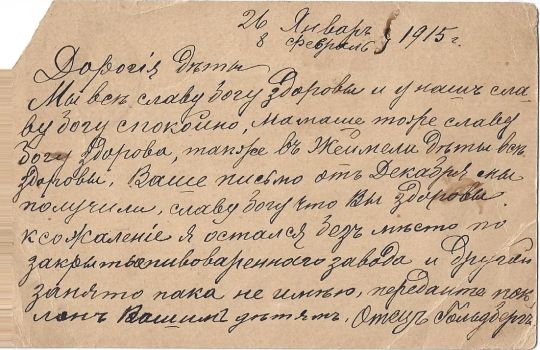 26 Январъ
8 февраль } 1915 г.
Дорогія дѣты
Мы всѣ славу богу здоровы и у насъ сла-
ву богу спокойно, мамаше тоже славу
богу здорова, также въ Жеймеле дѣты всѣ
здоровы. Ваше письмо отъ Декабря мы
получили, славу богу что вы здоровы.
ксожаленіе я остался безъ мѣсто по
закрытье пивовареннаго завода и другой
занято пака не имѣю, переданте пок
лонъ Вашимъ дѣтямъ. Отецъ Гольдбергъ